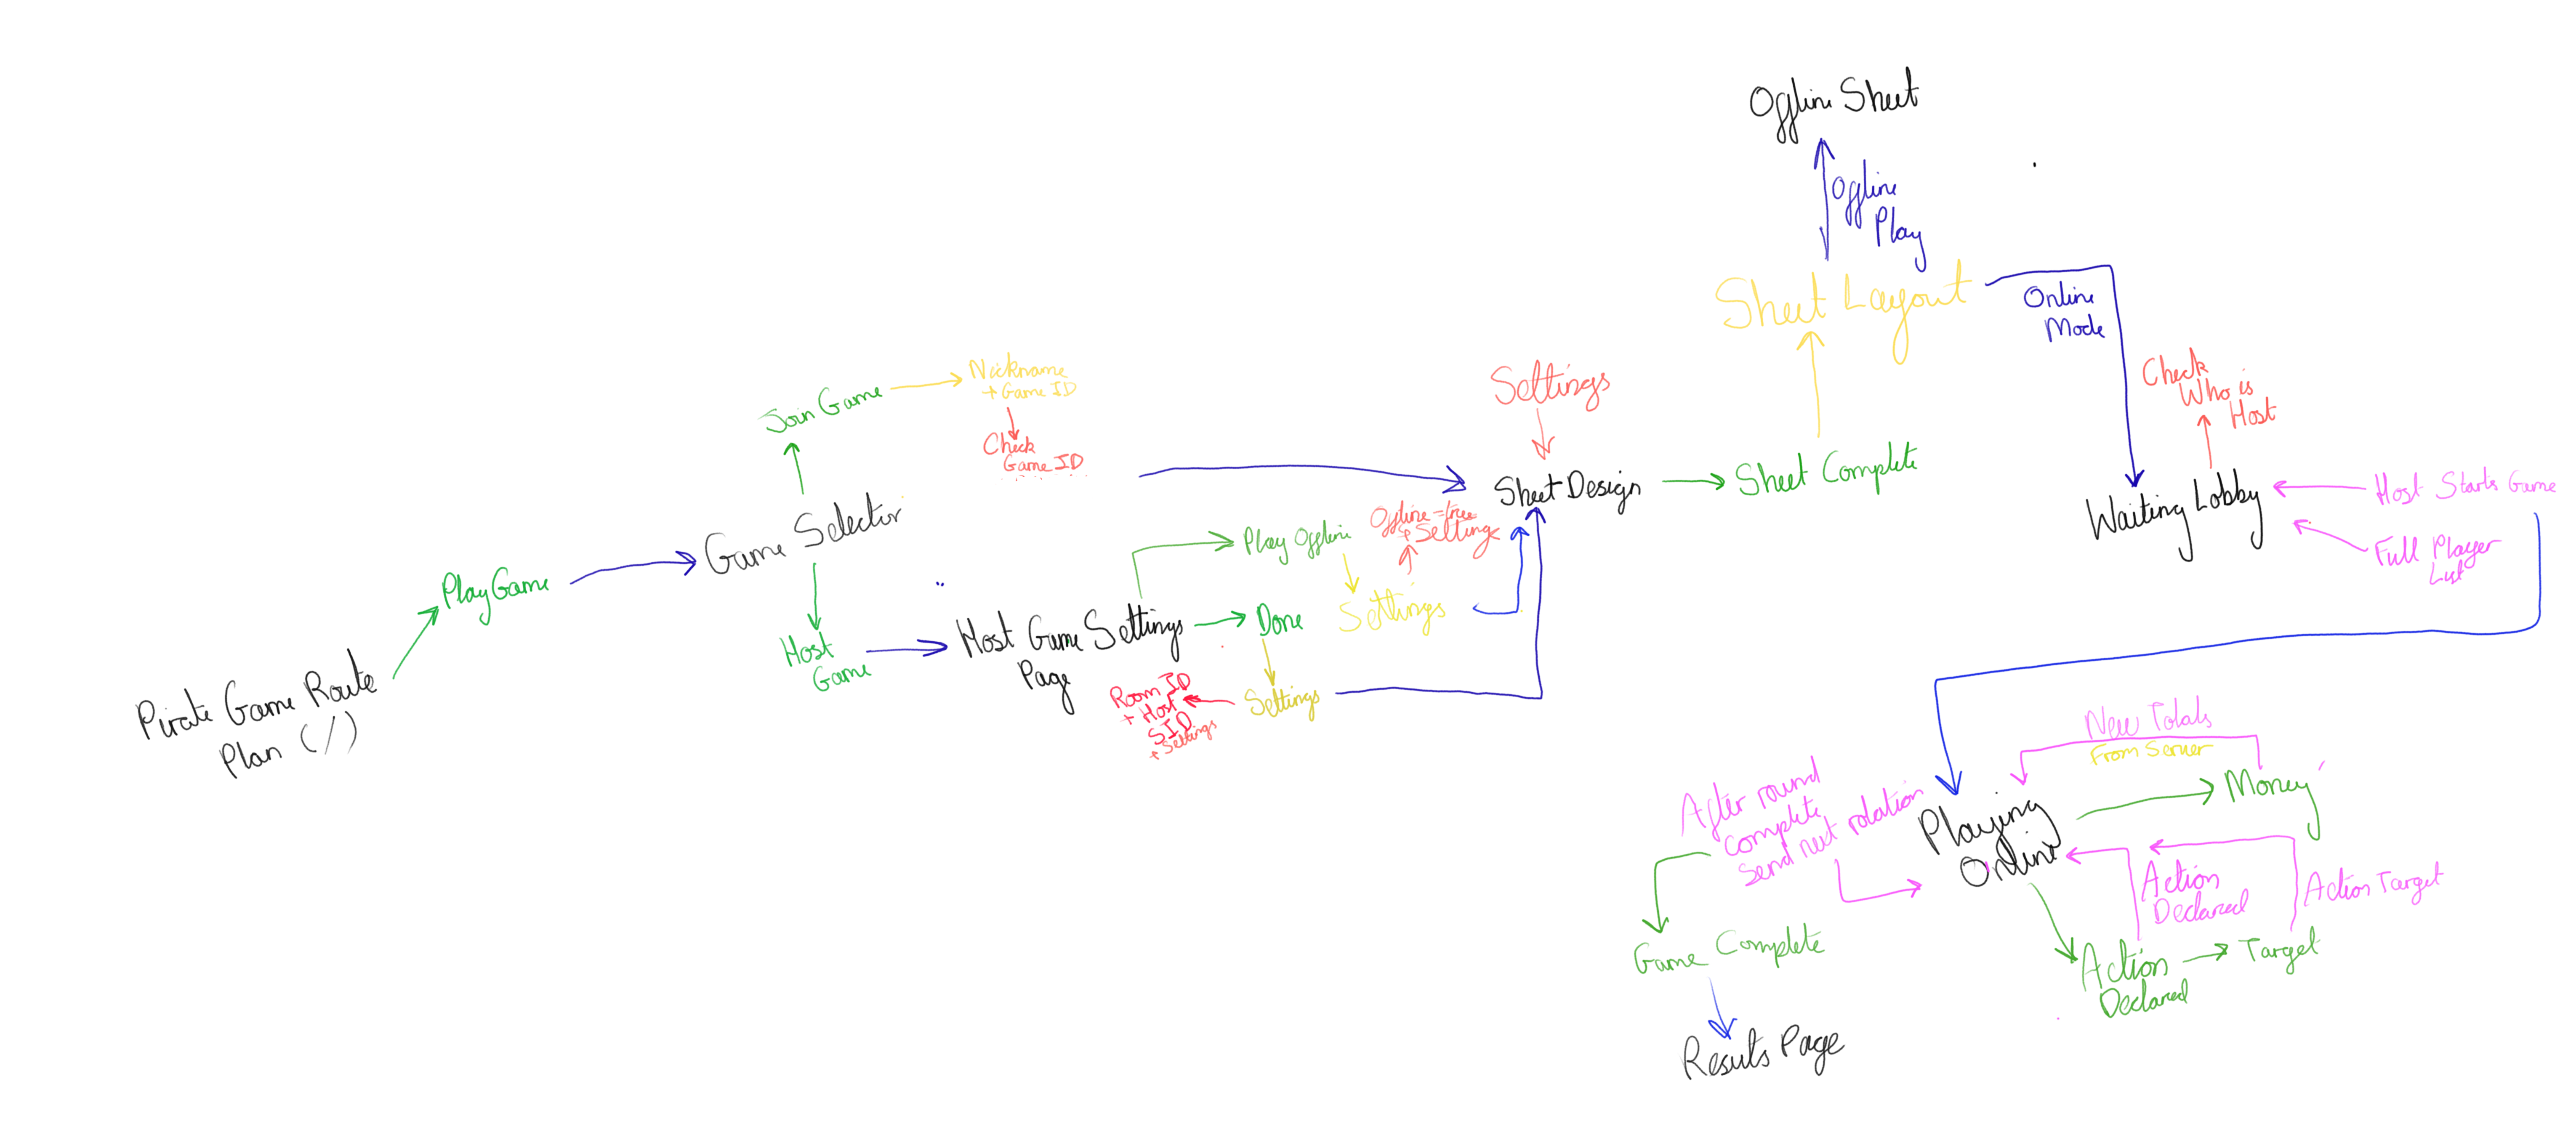 Pirate Game Route
Plan (/)
Play Game
Game Selector
Join Game
Nickname
+ Game ID
Check
Game ID
Host
Game
Host Game Settings
Page
Play Offline
Settings
Offline = true
+ Settings
Done
Settings
Room ID
+ Host
SID
+ Settings
Settings
Sheet Design
Sheet Complete
Sheet Layout
Offline
Play
Offline Sheet
Online
Mode
Waiting Lobby
Check
Who is
Host
Host Starts Game
Full Player
List
Playing
Online
New Totals
From Server
Money
Action
Declared
Action Target
Action
Declared
Target
After round
complete
send next rotation
Game Complete
Results Page